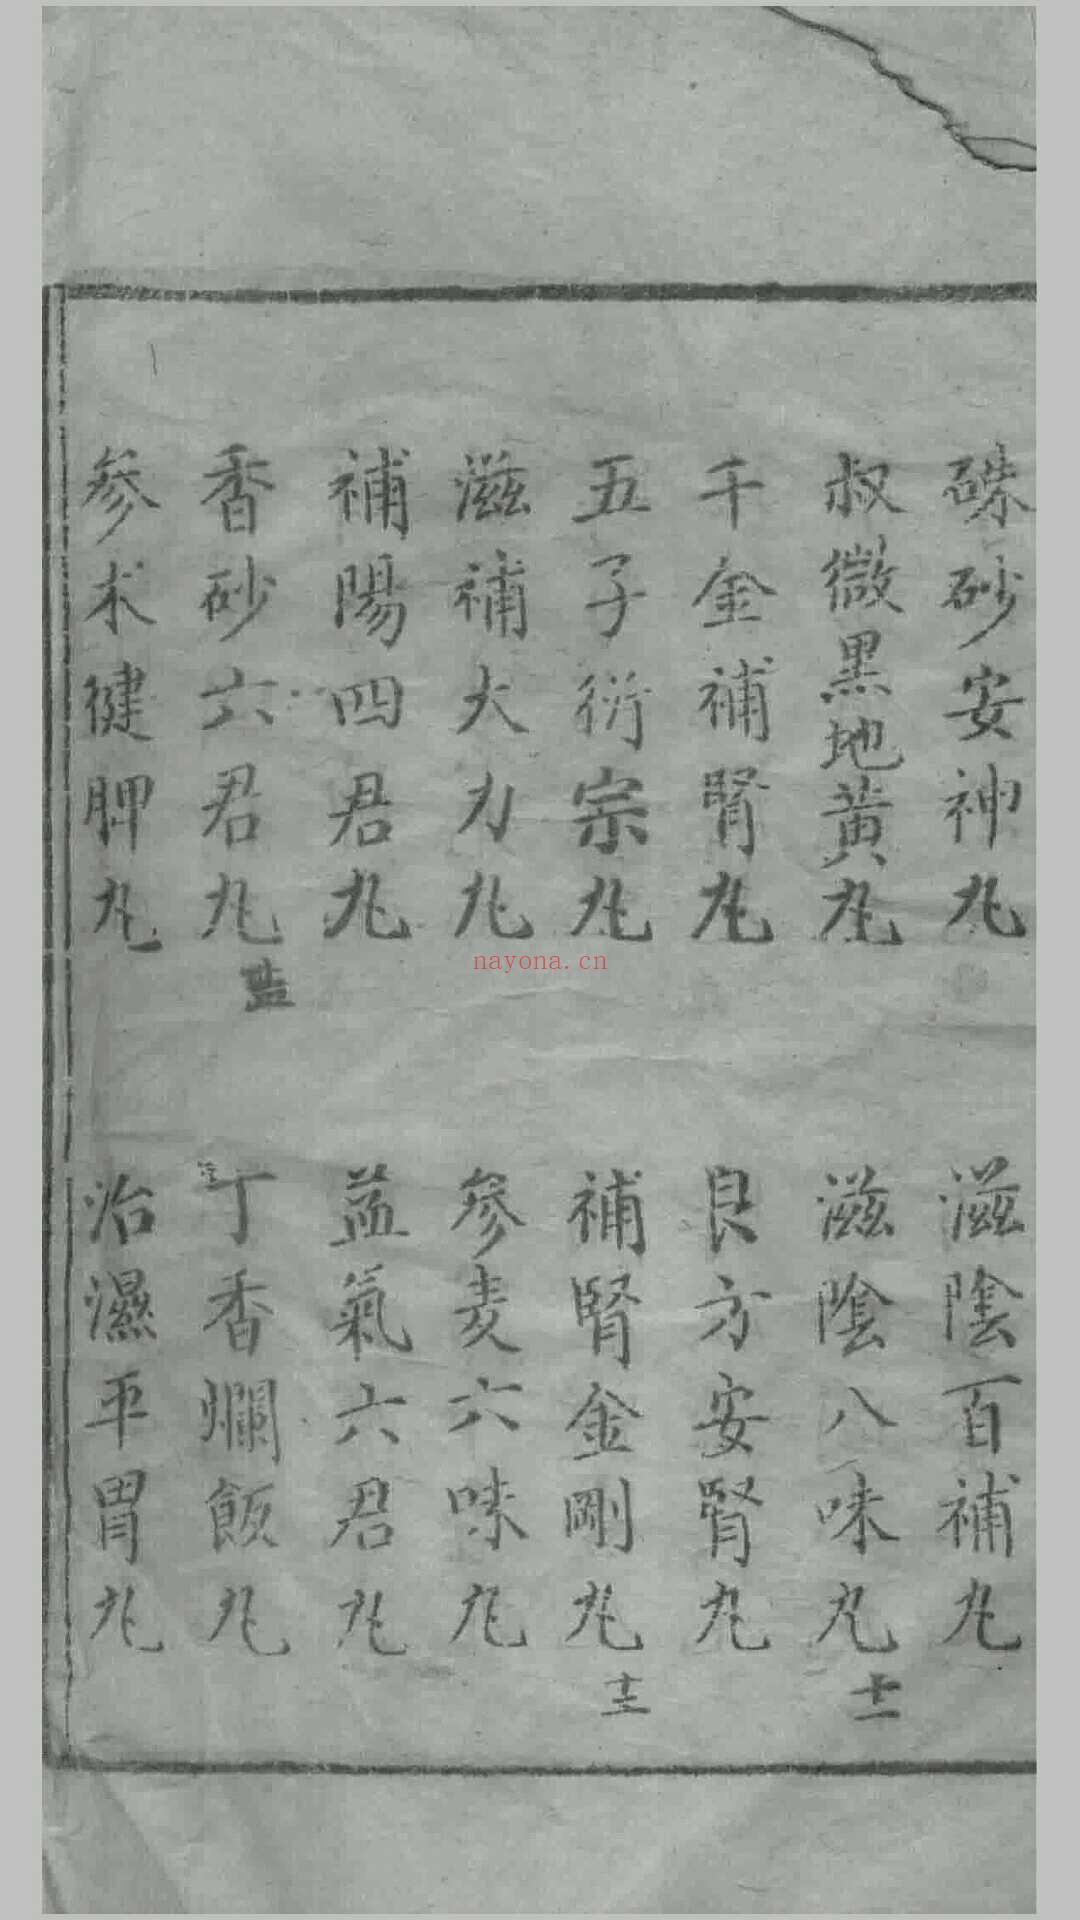 硃砂安神丸
滋陰百補丸
叔微黑地黃丸
滋陰八味丸
十二
千金補腎丸
良方安腎丸
五子衍宗丸
補腎金剛丸
十三
滋補大力丸
參麦六味丸
補陽四君丸
益氣六君丸
香砂六君丸
丁香爛飯丸
參术健脾丸
治濕平胃丸
nayona.cn